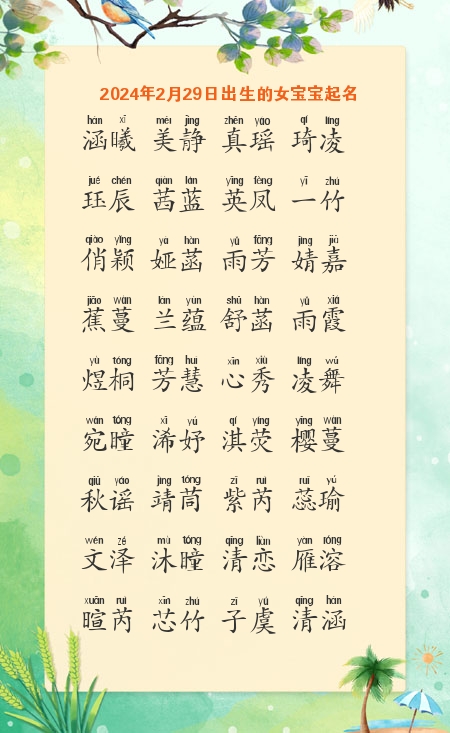 2024年2月29日出生的女宝宝起名
hán xī měi jìng zhēn yáo qí líng
涵曦 美静 真瑶 琦凌
jué chén qiàn lán yīng fèng yī zhú
珏辰 茜蓝 英凤 一竹
qiào yǐng yà hàn yǔ fāng jìng jiā
俏颖 娅菡 雨芳 婧嘉
jiāo wàn lán yùn shū hàn yǔ xiá
蕉蔓 兰蕴 舒菡 雨霞
yù tóng fāng huì xīn xiù líng wǔ
煜桐 芳慧 心秀 凌舞
wǎn tóng xī yú qí yíng yīng wàn
宛瞳 浠妤 淇荧 樱蔓
qiū yáo jìng tóng zǐ ruì ruǐ yú
秋谣 靖茼 紫芮 蕊瑜
wén zé mù tóng qīng liàn yàn róng
文泽 沐瞳 清恋 雁溶
xuān ruì xīn zhú zǐ yú qīng hán
暄芮 芯竹 子虞 清涵